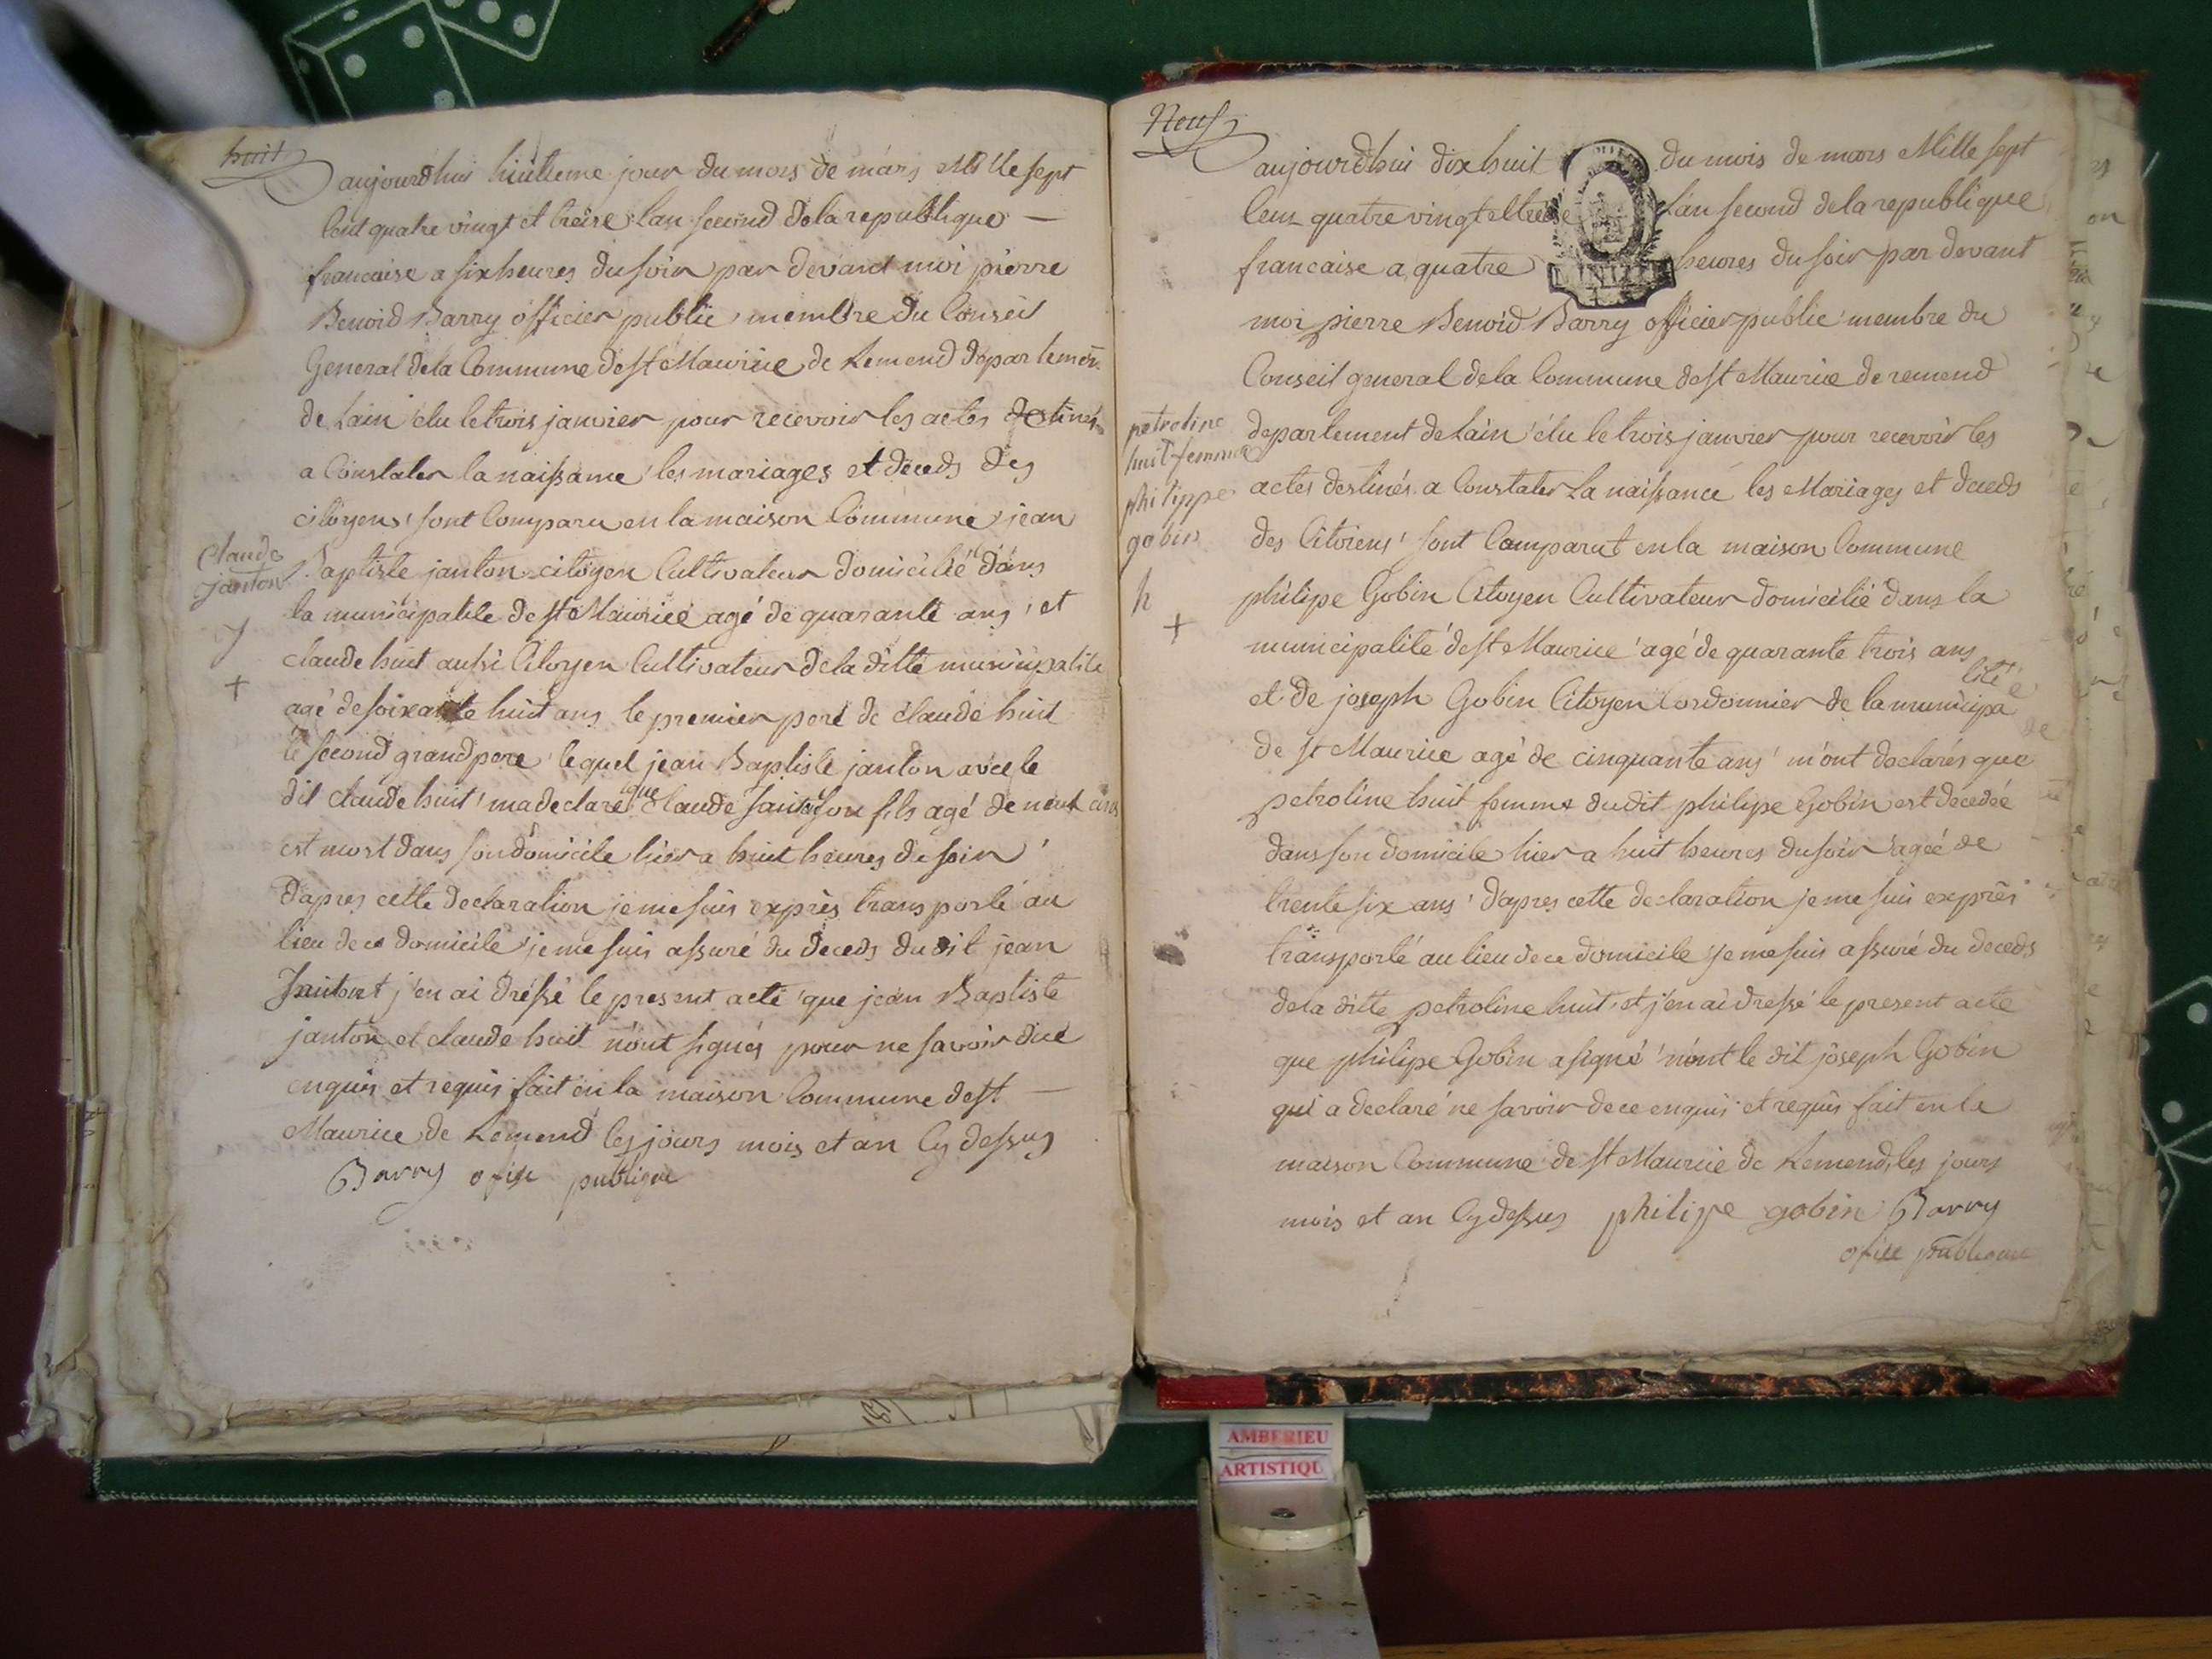 huit
aujourdhui huitieme jour du mois de mars Mille sept
Cent quatre vingt et treise Lan second de la republique —
francaise a six heures du soir par devant moi pierre
Benoid Barry officier public membre du Conseil
General de la Commune de St Maurice de Remend departemen
de Lain elu le trois janvier pour recevoir les actes destinés
a Constater la naissance les mariages et deceds des
citoyens sont Comparu en la maison Commune jean
Claude
janton
Baptiste janton citoyen Cultivateur domicilié dans
la municipalite de St Maurice agé de quarante ans et
claude huit aussi Citoyen Cultivateur de la ditte municipalite
+
agé de soixante huit ans le premier pere de claude huit
le second grand pere lequel jean Baptiste janton avec le
dit claude huit ma declaré que Claude Janton son fils agé de neuf ans
est mort dans son domicile hier a huit heures du soir
d'apres cette declaration je me suis exprès transporté au
lieu de ce domicile je me suis assuré du deceds du dit jean
Janton et j'en ai dressé le present acte que jean Baptiste
janton et claude huit n'ont signés pour ne savoir de ce
enquis et requis fait en la maison Commune de St —
Maurice de Remend les jours mois et an Cy dessus
Barry ofise publique
Neuf
aujourdhui dix huit du mois de mars Mille sept
Cent quatre vingt et treise Lan second de la republique
francaise a quatre heures du soir par devant
moi pierre Benoid Barry officier public membre du
Conseil general de la Commune de St Maurice de remend
petroline
huit femme
philippe
gobin
h
+
departement de Lain élu le trois janvier pour recevoir les
actes destinés a Constater La naissance les Mariages et deceds
des Citoiens sont Comparut en la maison Commune
philipe Gobin Citoyen Cultivateur domicilié dans la
municipalité de St Maurice agé de quarante trois ans
et de joseph Gobin Citoyen Cordonnier de la municipalité
de St Maurice agé de cinquante ans m'ont declarés que
petroline huit femme du dit philipe Gobin est decedée
dans son domicile hier a huit heures du soir agée de
trente six ans d'apres cette declaration je me suis exprès
transporté au lieu de ce domicile je me suis assuré du deceds
de la ditte petroline huit et j'en ai dressé le present acte
que philipe Gobin a signé n'ont le dit joseph Gobin
qui a declaré ne savoir de ce enquis et requis fait en la
maison Commune de St Maurice de Remend les jours
mois et an Cy dessus philippe gobin Barry
ofise publique
AMBERIEU
ARTISTIQU